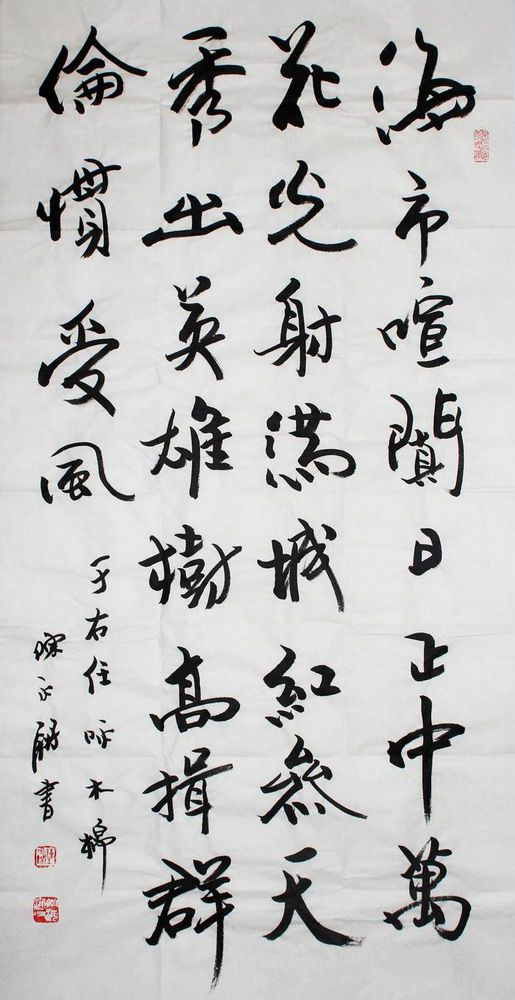 海市喧闐日正中萬
花光射滿城紅參天
秀出英雄樹高揖群
倫慣受風
于右任咏木棉
書